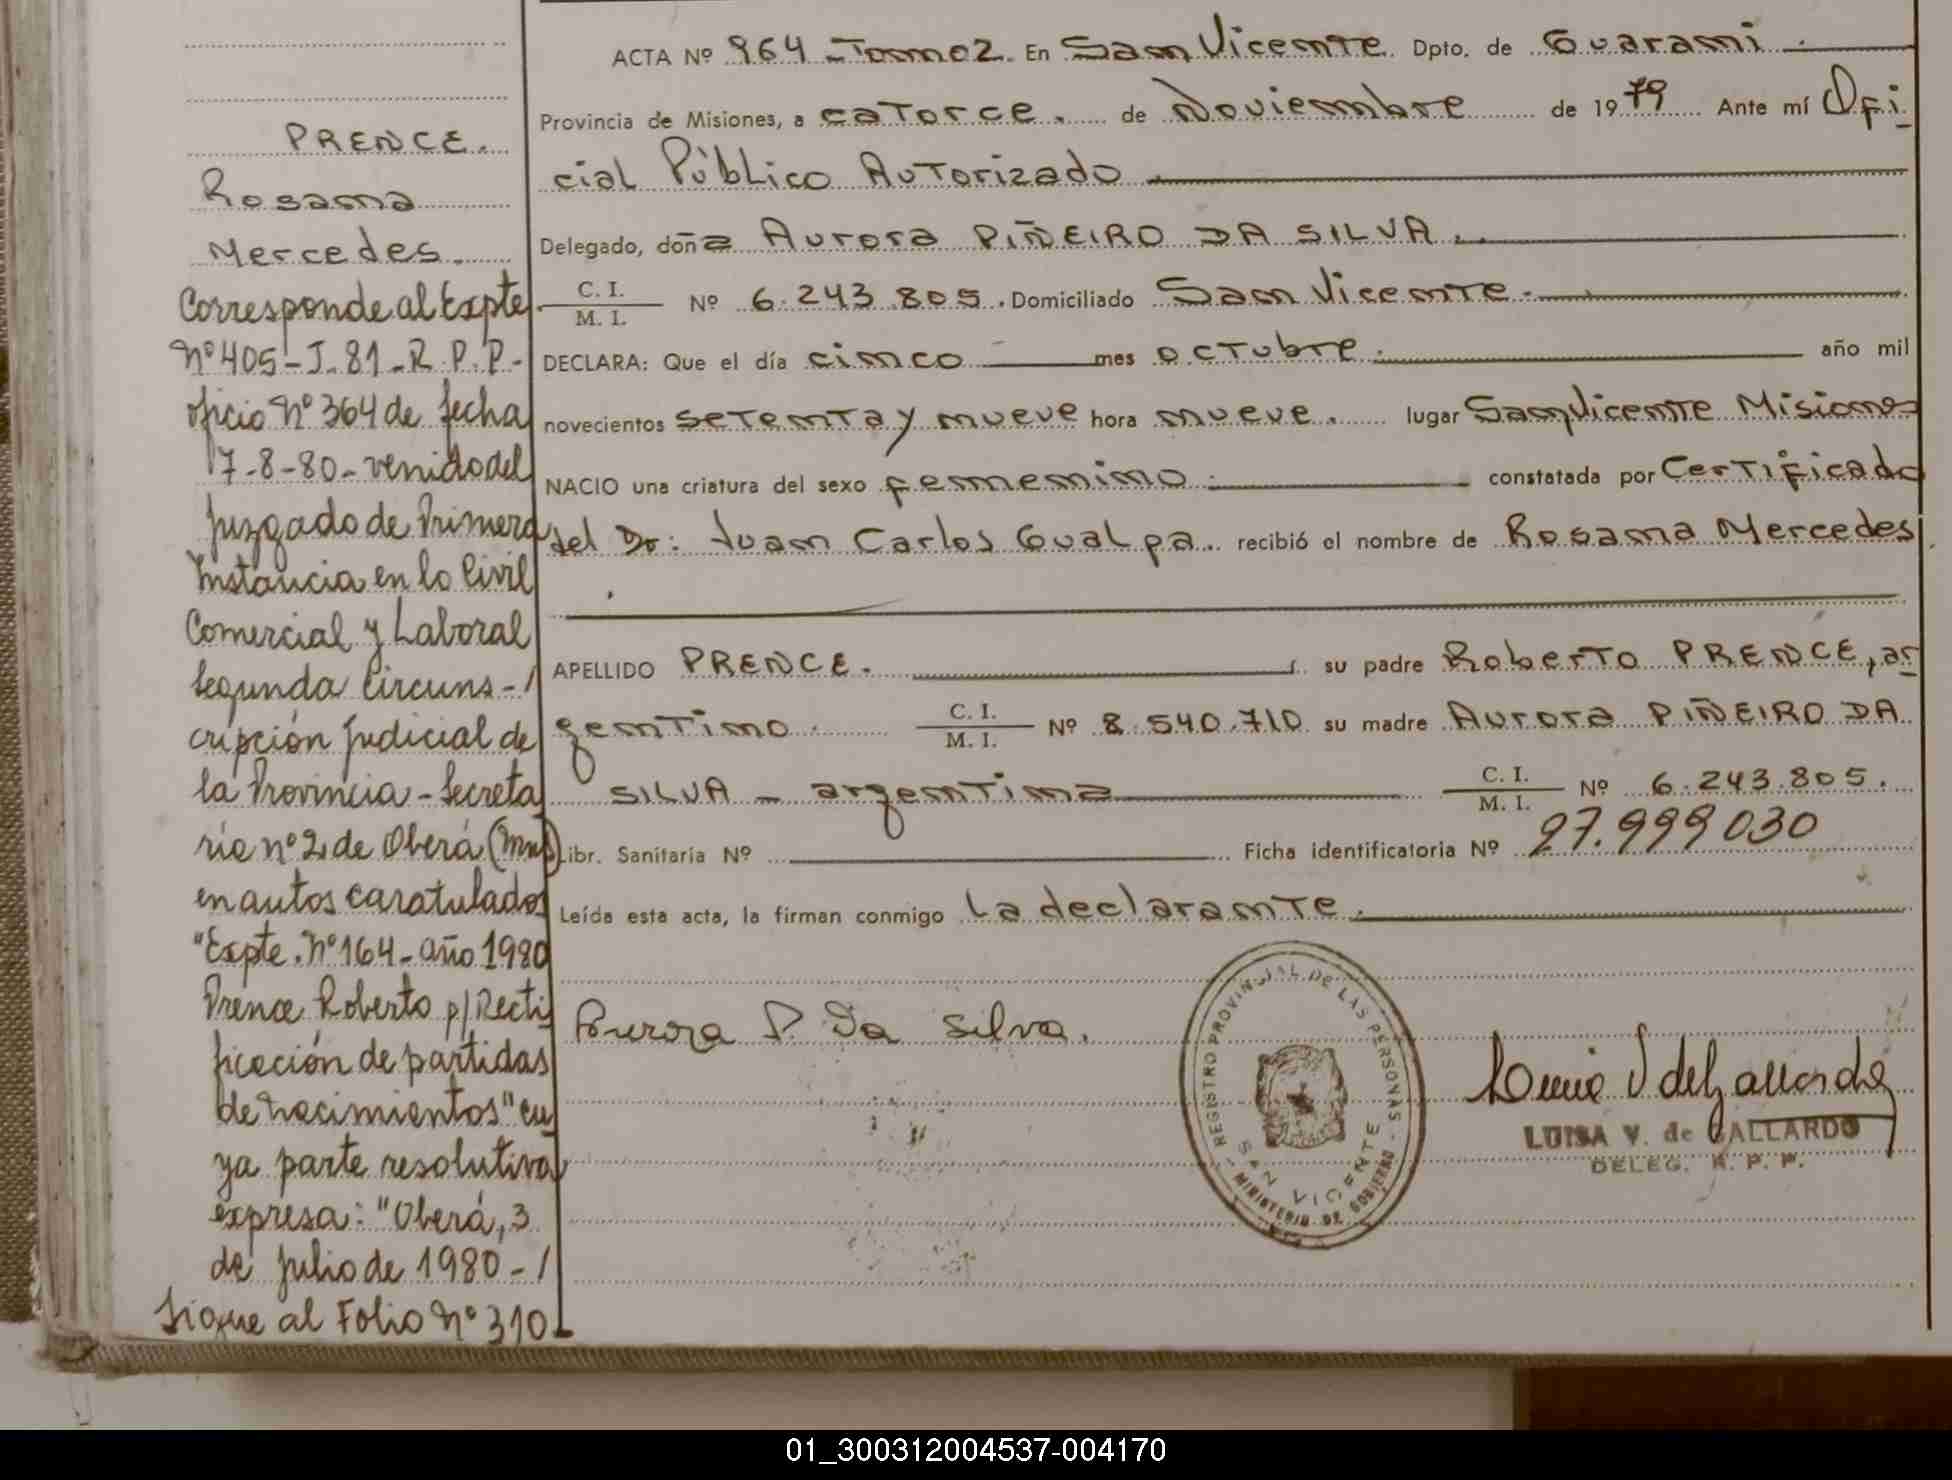 PRENCE.
Rosana
Mercedes.
Corresponde al Expte
Nº 405-J-81-R.P.P-
oficio Nº 364 de fecha
17-8-80-venido del
Juzgado de Primera
Instancia en lo Civil
Comercial y Laboral
Segunda Circuns-/
cripción Judicial de
la Provincia-Secreta
ría nº 2 de Oberá (Mnes)
en autos caratulados
"Expte. Nº 164-año 1980
Prence Roberto p/Recti
ficación de partidas
de nacimientos" cu
ya parte resolutiva
expresa: "Oberá, 3
de julio de 1980-/
Sigue al Folio Nº 310
ACTA Nº 964 - Tomo 2. En San Vicente Dpto. de Guarani.
Provincia de Misiones, a catorce. de Noviembre de 1979 Ante mí Ofi
cial Público Autorizado
Delegado, doña Aurora PIÑEIRO DA SILVA.
C. I. / M. I. Nº 6.243.805. Domiciliado San Vicente.
DECLARA: Que el día cinco mes octubre. año mil
novecientos setenta y nueve hora nueve. lugar San Vicente Misiones
NACIO una criatura del sexo femenino. constatada por Certificado
del Dr: Juan Carlos Gualpa. recibió el nombre de Rosana Mercedes
APELLIDO PRENCE. su padre Roberto PRENCE, ar
gentino C. I. / M. I. Nº 8.540.710 su madre Aurora PIÑEIRO DA
SILVA - argentina C. I. / M. I. Nº 6.243.805.
Libr. Sanitaria Nº Ficha identificatoria Nº 27.999030
Leída esta acta, la firman conmigo La declarante.
Aurora P. Da Silva.
REGISTRO PROVINCIAL DE LAS PERSONAS
SAN VICENTE
MINISTERIO DE GOBIERNO
Luisa V de Gallardo
LUISA V. de GALLARDO
DELEG. R. P. P.
01_300312004537-004170